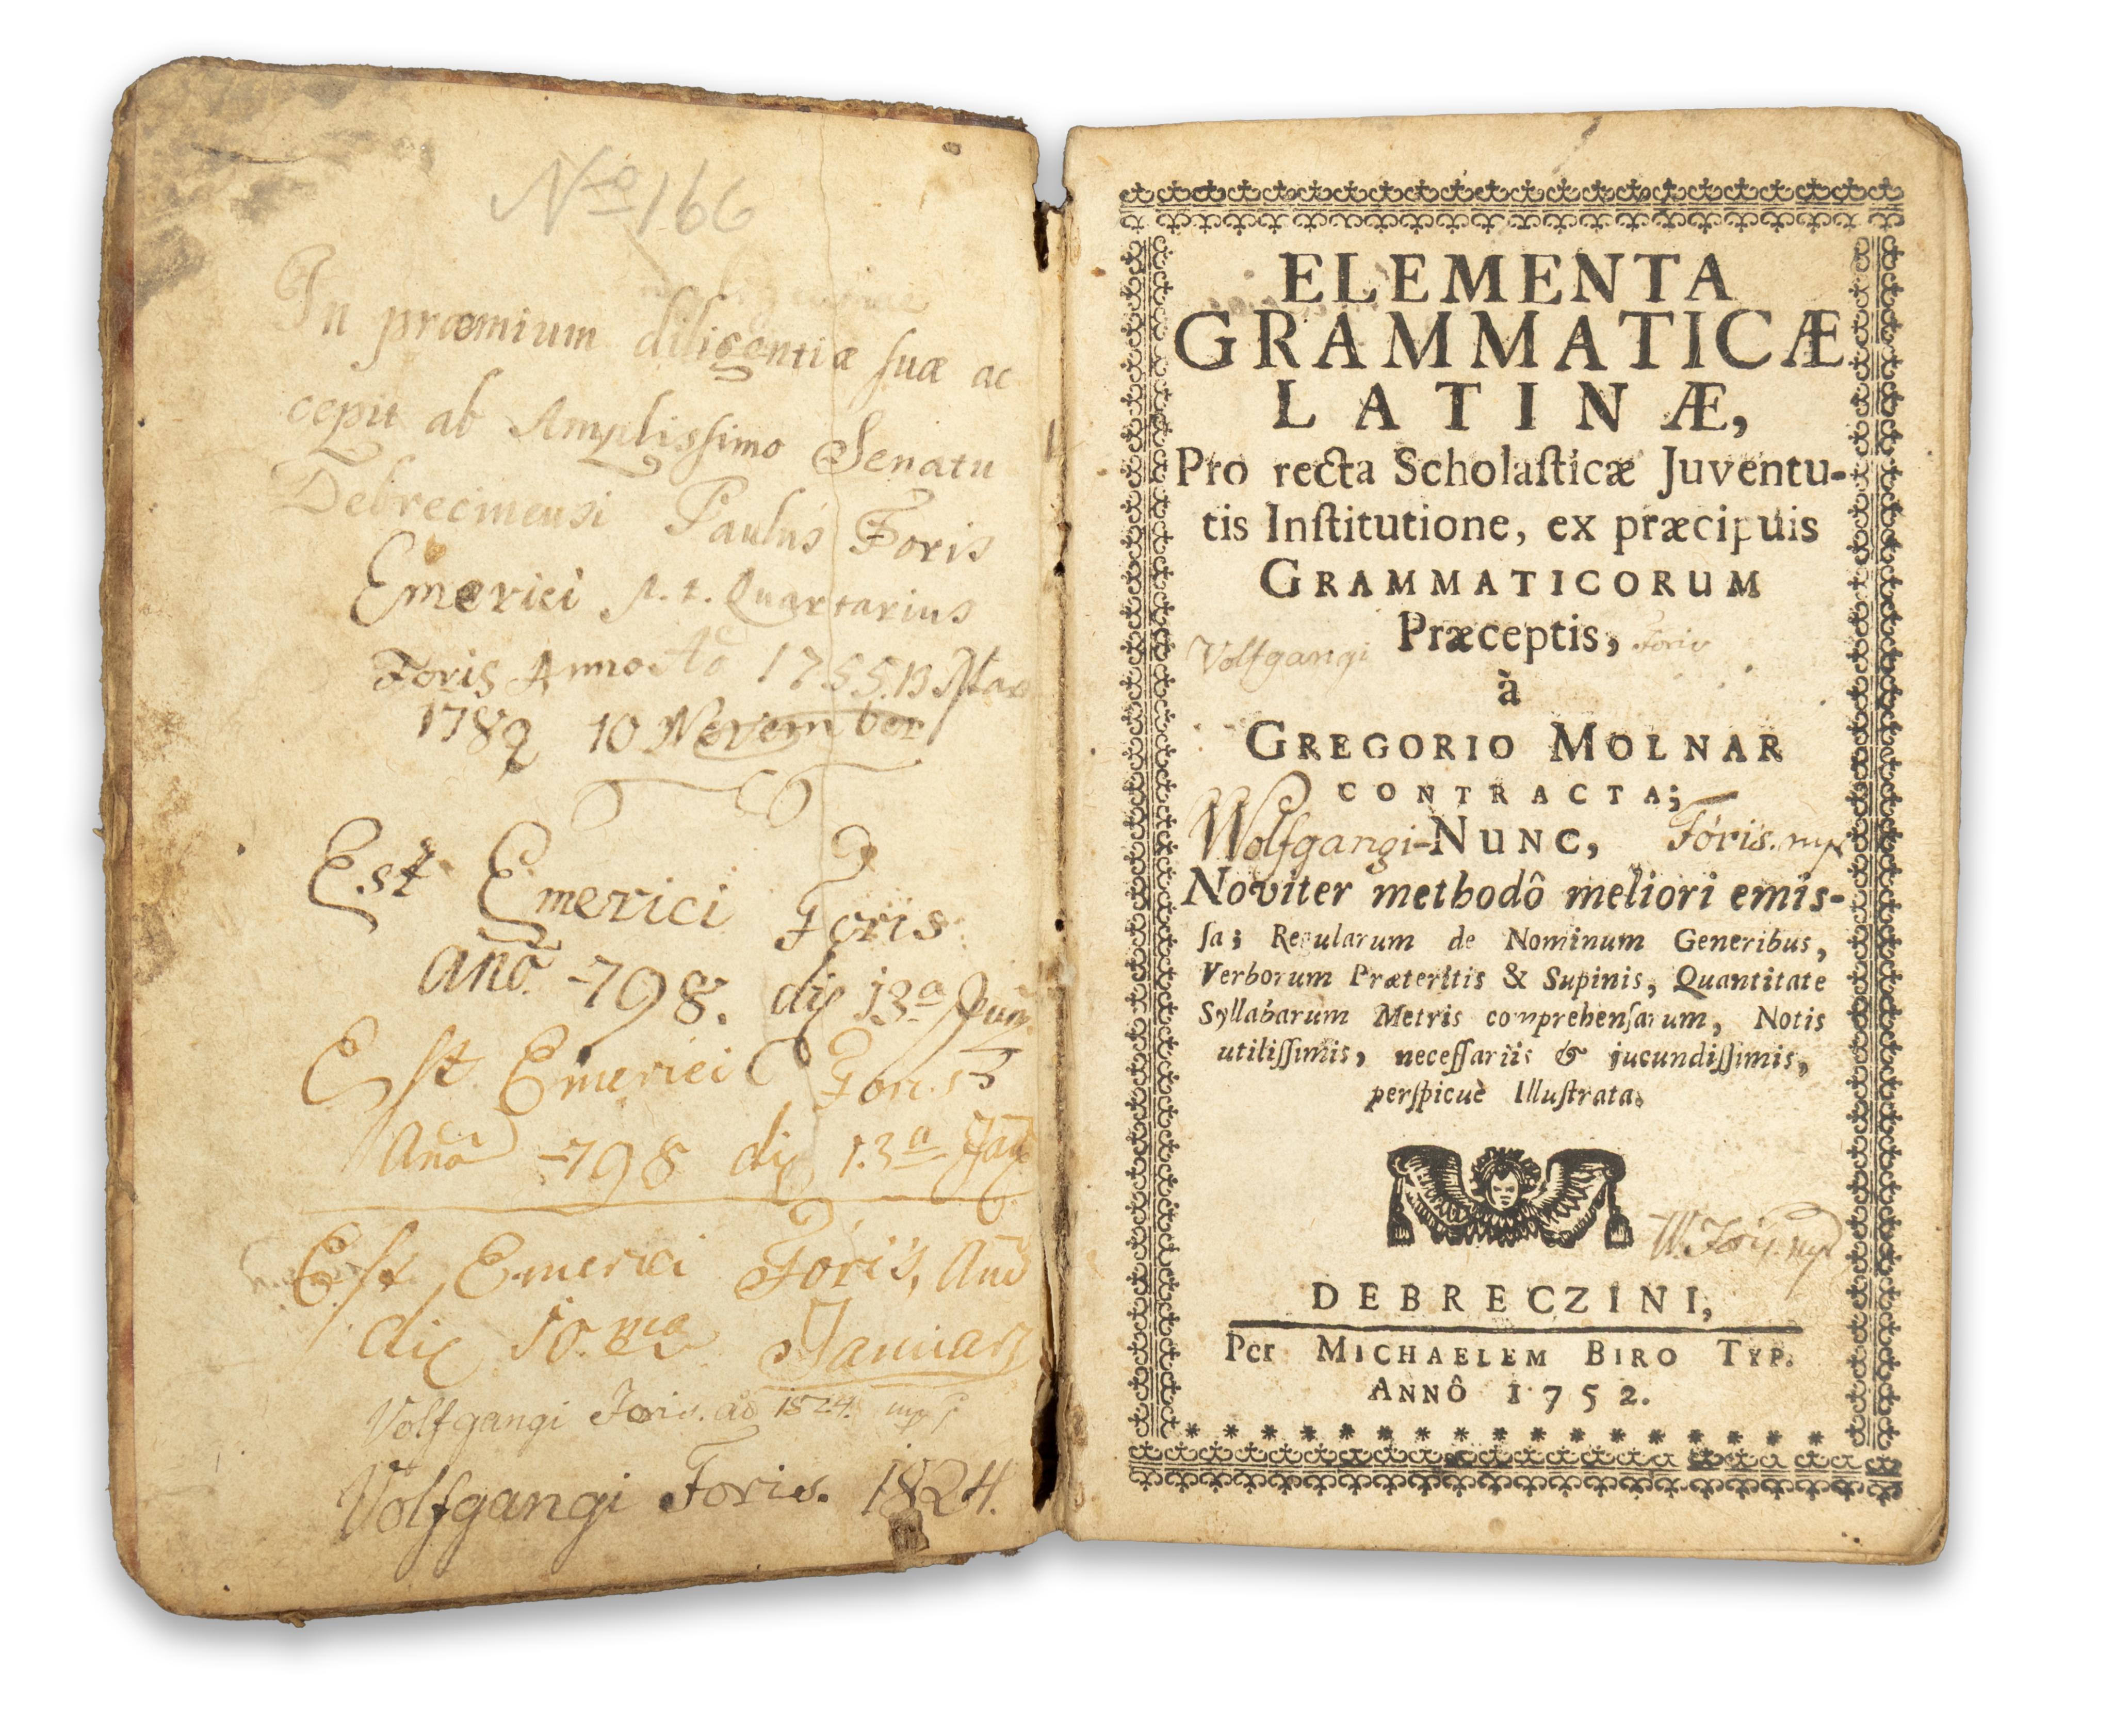 No 166
In præmium diligentiæ ſuæ ac
cepit ab Amplisſimo Senatu
Debrecinensi Paulus Foris
Emerici p. t. Quartarius
Foris Anno Ao 1755. 13
1789 10 November
Est Emerici Foris
Año. 798. die 13a
Est Emerici Foris
Año 798 die 13a Jan
Est Emerici Foris, Ano
die 10.ma Januarÿ
Volfgangi Foris. ao 1824. mp
Volfgangi Foris. 1824.
ELEMENTA
GRAMMATICÆ
LATINÆ,
Pro recta Scholaſticæ Juventu-
tis Inſtitutione, ex præcipuis
GRAMMATICORUM
Volfgangi Præceptis, Foris
à
GREGORIO MOLNAR
CONTRACTA;
Wolfgangi NUNC, Fóris. mp
Noviter methodô meliori emis-
ſa; Regularum de Nominum Generibus,
Verborum Præteritis & Supinis, Quantitate
Syllabarum Metris comprehenſarum, Notis
utiliſſimis, neceſſariis & jucundiſſimis,
perſpicuè Illuſtrata.
W. Fóris. mp
DEBRECZINI,
Per MICHAELEM BIRO TYP.
ANNÔ 1752.